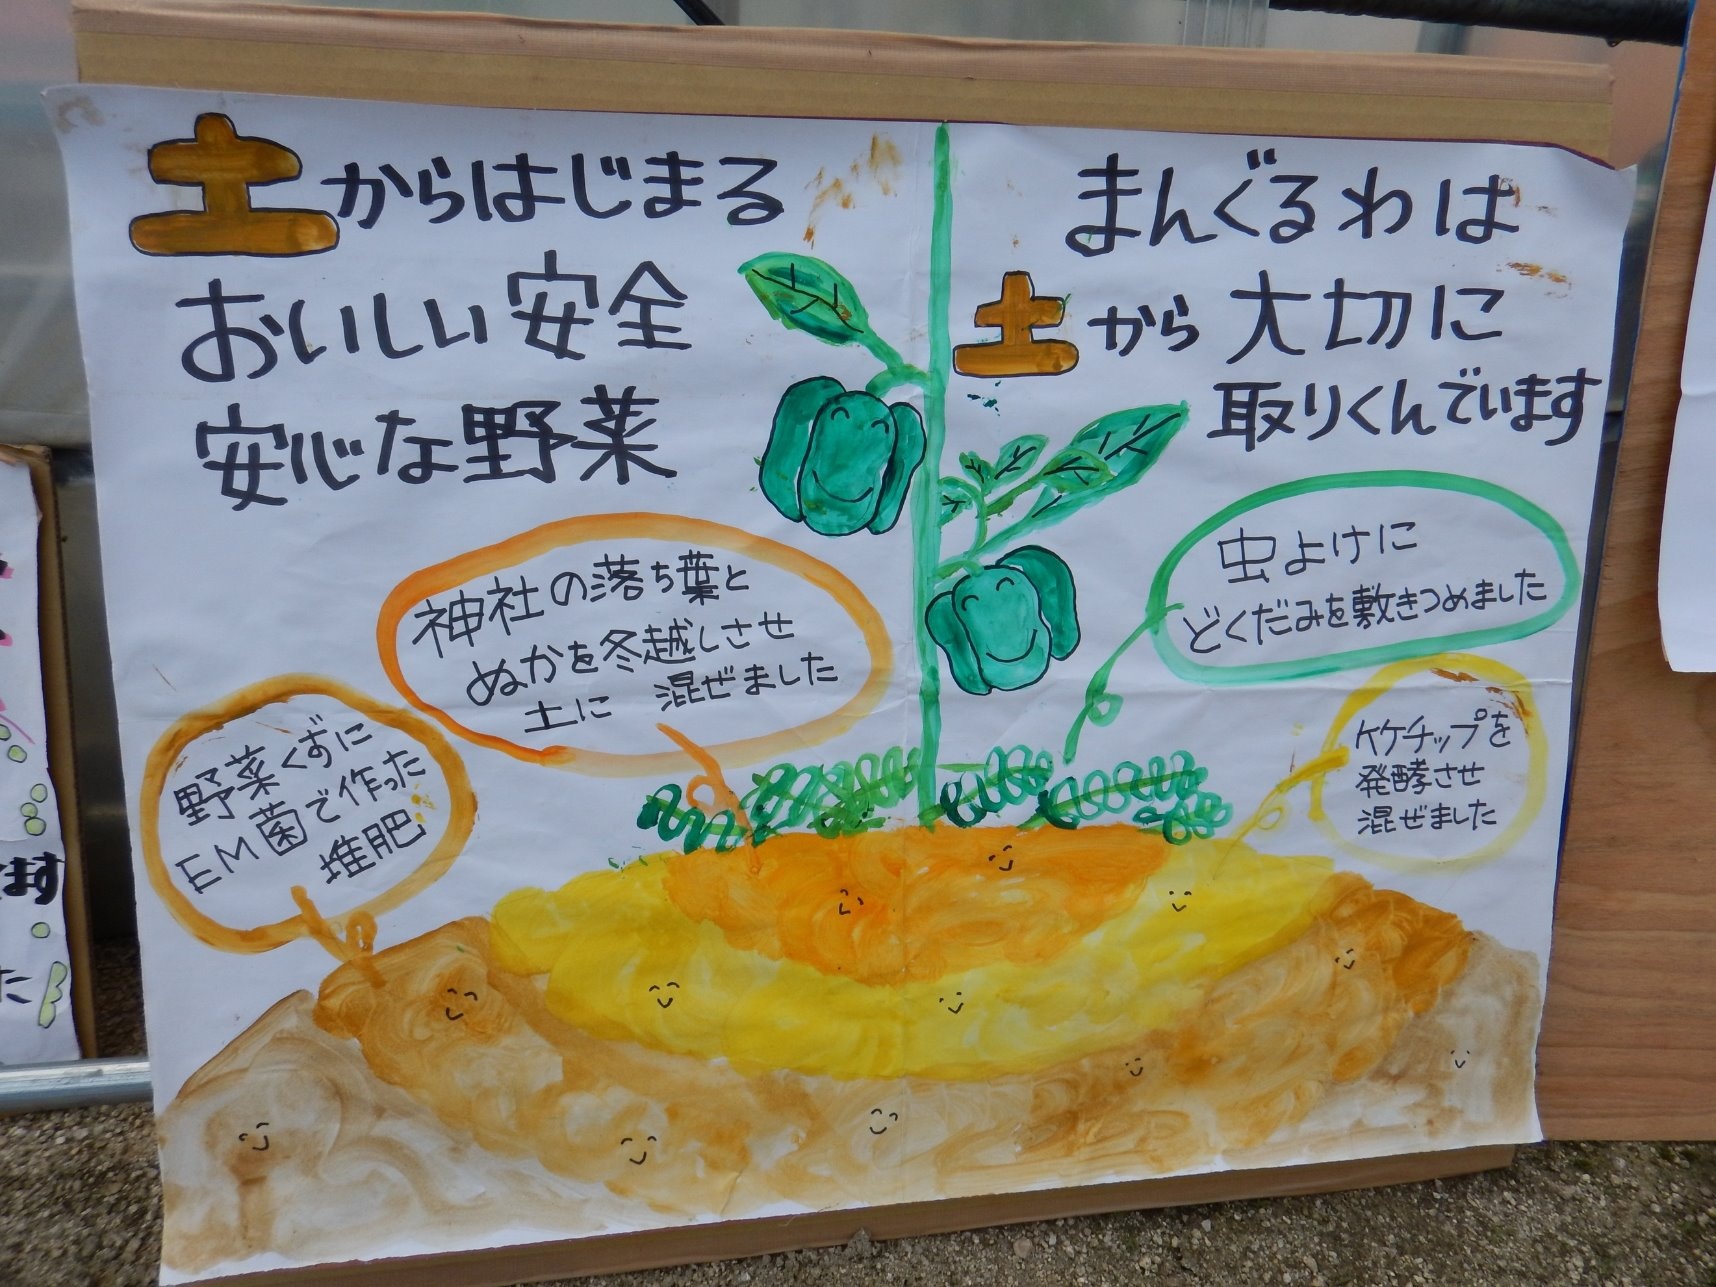 土からはじまる
おいしい安全
安心な野菜
まんぐるわは
土から大切に
取りくんでいます
神社の落ち葉と
ぬかを冬越しさせ
土に 混ぜました
虫よけに
どくだみを敷きつめました
野菜くずに
EM菌で作った
堆肥
ケケチップを
発酵させ
混ぜました
ます
た